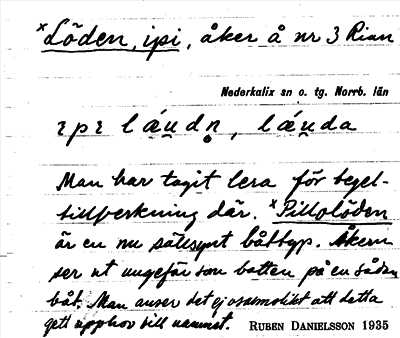 ×Löden, ipi, åker å nr 3 Rian
Nederkalix sn o. tg. Norrb. län
ıpı láu̯dn̥, láu̯da
Man har tagit lera för tegel-
tillverkning där. ×Pillolöden
är en nu sällsynt båttyp. Åkern
ser ut ungefär som botten på en sådan
båt. Man anser det ej osannolikt att detta
gett upphov till namnet. RUBEN DANIELSSON 1935